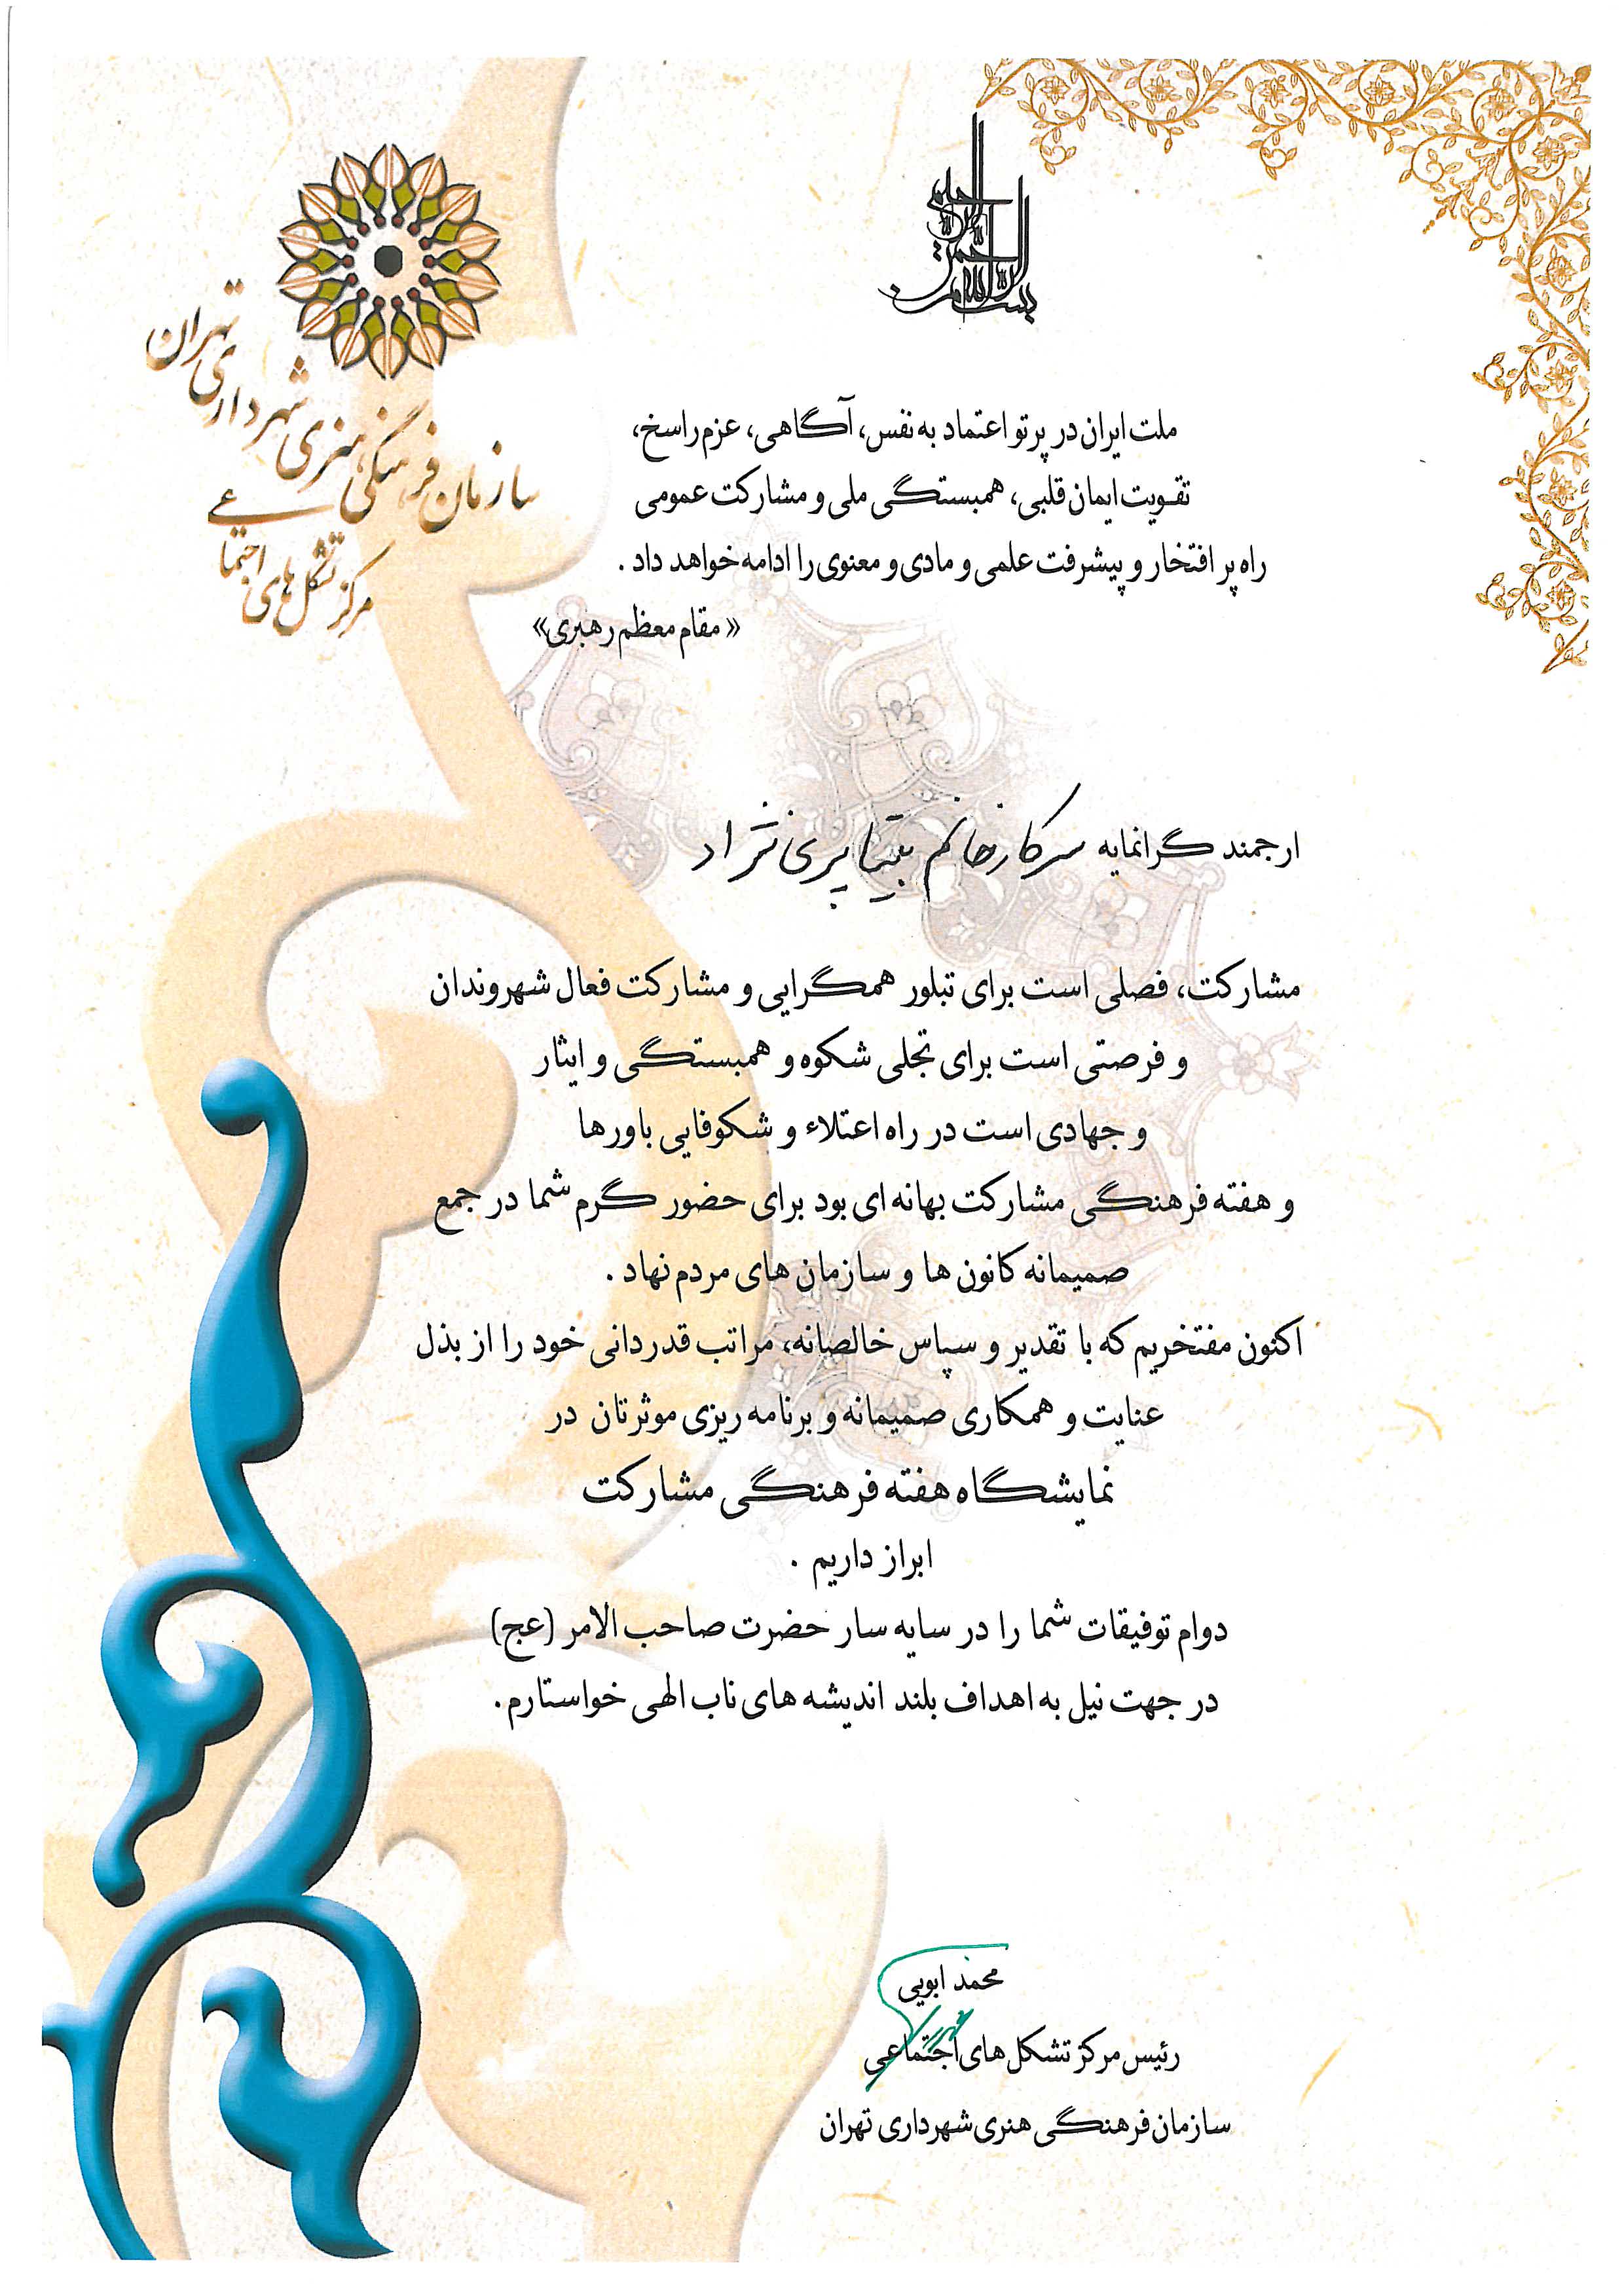 بسم الله الرحمن الرحیم
سازمان فرهنگی هنری شهرداری تهران
مرکز تشکل های اجتماعی
ملت ایران در پرتو اعتماد به نفس، آگاهی، عزم راسخ،
تقویت ایمان قلبی، همبستگی ملی و مشارکت عمومی
راه پر افتخار و پیشرفت علمی و مادی و معنوی را ادامه خواهد داد .
« مقام معظم رهبری»
ارجمند گرانمایه سرکار خانم بیتا پری نژاد
مشارکت، فصلی است برای تبلور همگرایی و مشارکت فعال شهروندان
و فرصتی است برای تجلی شکوه و همبستگی و ایثار
و جهادی است در راه اعتلاء و شکوفایی باورها
و هفته فرهنگی مشارکت بهانه ای بود برای حضور گرم شما در جمع
صمیمانه کانون ها و سازمان های مردم نهاد .
اکنون مفتخریم که با تقدیر و سپاس خالصانه، مراتب قدردانی خود را از بذل
عنایت و همکاری صمیمانه و برنامه ریزی موثرتان در
نمایشگاه هفته فرهنگی مشارکت
ابراز داریم .
دوام توفیقات شما را در سایه سار حضرت صاحب الامر (عج)
در جهت نیل به اهداف بلند اندیشه های ناب الهی خواستارم.
محمد ابویی
رئیس مرکز تشکل های اجتماعی
سازمان فرهنگی هنری شهرداری تهران